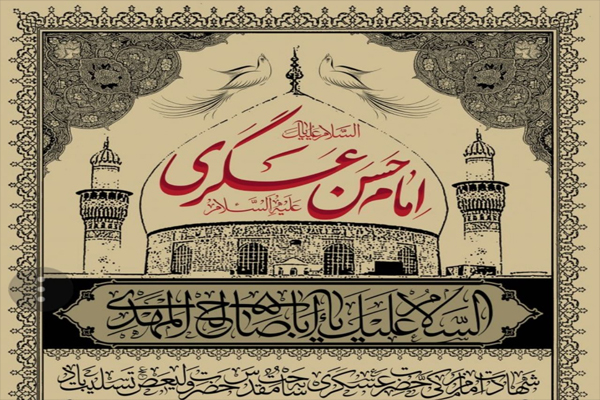 السلام علیک
امام حسن عسکری
علیه السلام
السلام علیک یا اباصالح المهدی
شهادت امام حضرت عسکری ساحت مقدس حضرت ولیعصر تسلیت باد